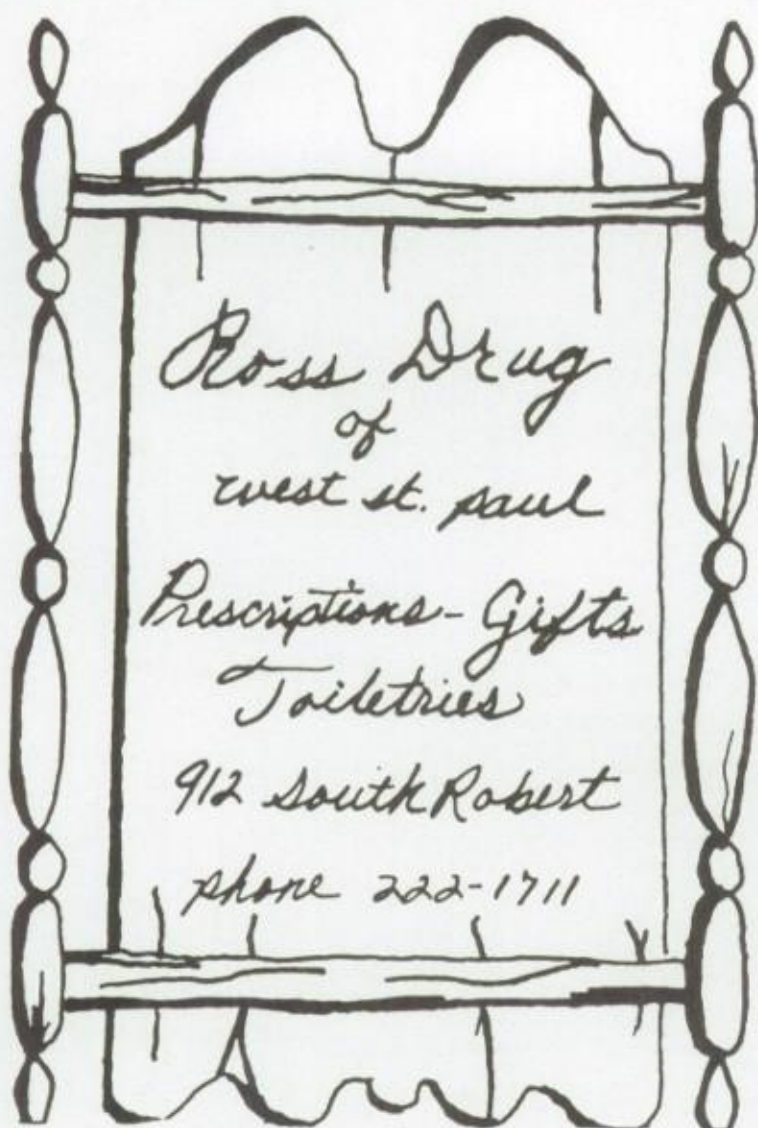 Ross Drug
of
west st. paul
Prescriptions - Gifts
Toiletries
912 South Robert
phone 222-1711